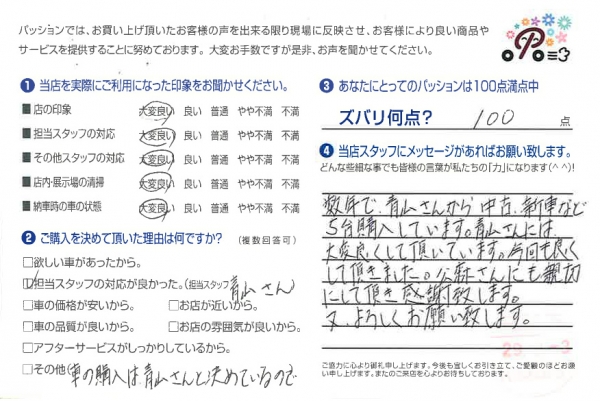 パッションでは、お買い上げ頂いたお客様の声を出来る限り現場に反映させ、お客様により良い商品や
サービスを提供することに努めております。大変お手数ですが是非、お声を聞かせてください。
❶ 当店を実際にご利用になった印象をお聞かせください。
■ 店の印象 大変良い 良い 普通 やや不満 不満
■ 担当スタッフの対応 大変良い 良い 普通 やや不満 不満
■ その他スタッフの対応 大変良い 良い 普通 やや不満 不満
■ 店内・展示場の清掃 大変良い 良い 普通 やや不満 不満
■ 納車時の車の状態 大変良い 良い 普通 やや不満 不満
❷ ご購入を決めて頂いた理由は何ですか？（複数回答可）
□欲しい車があったから。
□担当スタッフの対応が良かった。(担当スタッフ 青山さん
□車の価格が安いから。 □お店が近いから。
□車の品質が良いから。 □お店の雰囲気が良いから。
□アフターサービスがしっかりしているから。
□その他(車の購入は青山さんと決めているので
❸ あなたにとってのパッションは100点満点中
ズバリ何点？ 100 点
❹ 当店スタッフにメッセージがあればお願い致します。
どんな些細な事でも皆様の言葉が私たちの「力」になります(^ ^)!
数年で、青山さんから中古、新車など
5台購入しています。青山さんには、
大変良くして頂いています。今回も良く
して頂きました。公森さんにも親切
にして頂き感謝致します。
又、よろしくお願い致します。
ご協力に心より御礼申し上げます。今後も宜しくお引き立て、ご愛顧のほどお願い申し上げます。またのご来店を心よりお待ちしております。